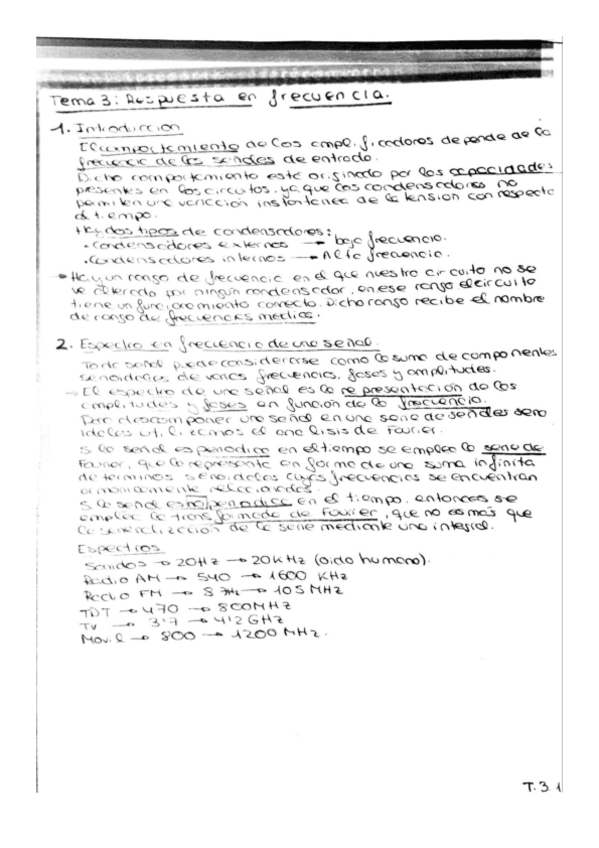 Tema 3: Respuesta en frecuencia.
1. Introducción
El comportamiento de los amplificadores depende de la
frecuencia de las señales de entrada.
Dicho comportamiento está originado por las capacidades
presentes en los circuitos, ya que los condensadores no
permiten una variación instantánea de la tensión con respecto
al tiempo.
Hay dos tipos de condensadores:
• Condensadores externos → baja frecuencia.
• Condensadores internos → Alta frecuencia.
→ Hay un rango de frecuencia en el que nuestro circuito no se
ve alterado por ningún condensador, en ese rango el circuito
tiene un funcionamiento correcto. Dicho rango recibe el nombre
de rango de frecuencias medias.
2. Espectro en frecuencia de una señal.
Toda señal puede considerarse como la suma de componentes
senoidales de varias frecuencias, fases y amplitudes.
→ El espectro de una señal es la representación de las
amplitudes y fases en función de la frecuencia.
Para descomponer una señal en una serie de señales seno
ideales utilizamos el analisis de Fourier.
Si la señal es periodica en el tiempo se emplea la serie de
Fourier, que la representa en forma de una suma infinita
de terminos senoidales cuyas frecuencias se encuentran
armonicamente relacionadas.
Si la señal es no periodica en el tiempo, entonces se
emplea la transformada de Fourier, que no es más que
la generalización de la serie mediante una integral.
Espectros
Sonidos → 20Hz → 20kHz (oido humano).
Radio AM → 540 → 1600 KHz
Radio FM → 8 MHz → 105 MHz
TDT → 470 → 800MHz
TV → 3'7 → 4'2 GHz
Movil → 800 → 1200 MHz.
T.3.1